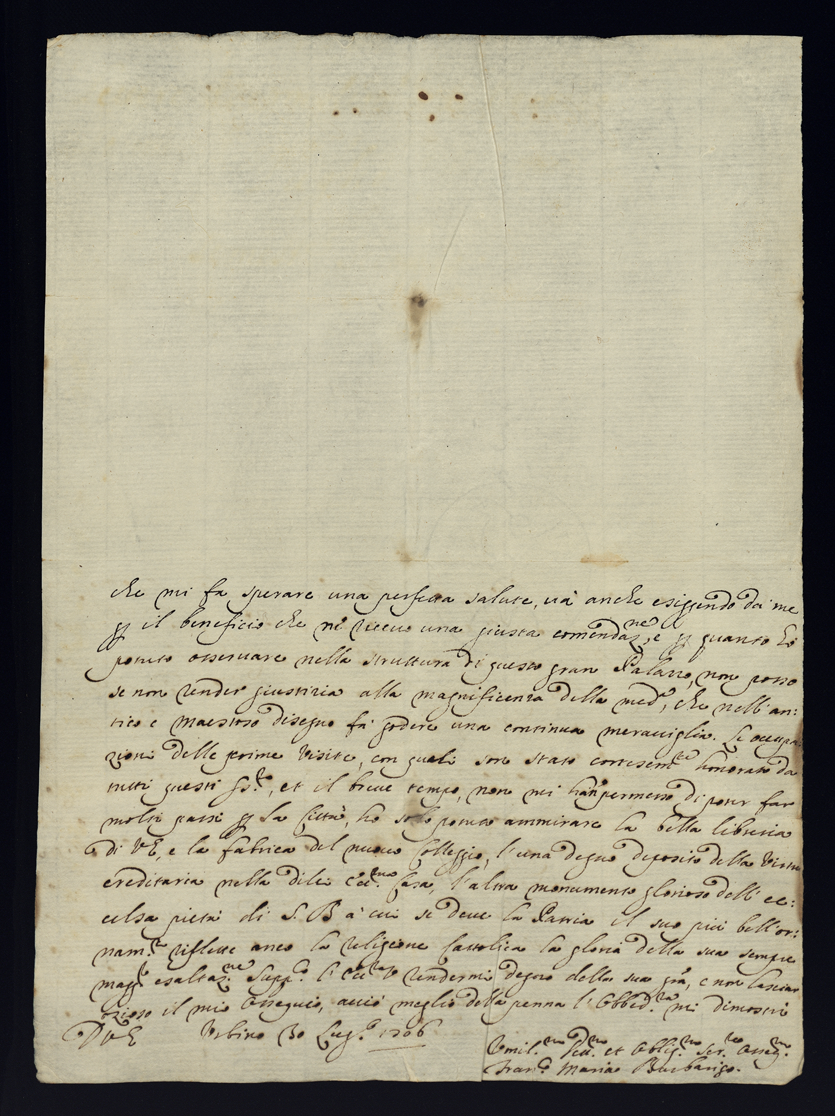 che mi fa sperare una perfetta salute, và anche esiggendo da me
il beneficio che ne ricevo una giusta comendaz.ne, e quanto hò
potuto osservare nella struttura di questo gran Palazzo, non posso
se non render giustizia alla magnificenza della med.a, che nell'an:
tico e maestoso disegno fà godere una continua meraviglia. Le occupa
zioni delle prime visite, con quali son stato cortesem.te honorato da
tutti questi SS.ri, et il breve tempo, non mi han permesso di poter far
molti passi la Città, ho solo potuto ammirare la bella libreria
di VE, e la fabrica del nuovo Colleggio, l'una degno deposito della Virtù
ereditaria nella di lei Ecc.ma Casa, l'altra monumento glorioso dell'ec:
celsa pietà di S. B à cui si deve la Patria il suo più bell'or:
nam.to riflette anco la religione Cattolica la gloria della sua sempre
magg.r esaltaz.ne Supp.o l'Ecc.za V rendermi degno della sua gra, e non lasciar
ozioso il mio ossequio, acciò meglio della penna l'obbed.za mi dimostri
D VE Urbino 30 Lug.o 1706
Umil.mo Dev.mo et Oblig.mo Ser.re Osseq.mo
Fran.o Maria Barbarigo.